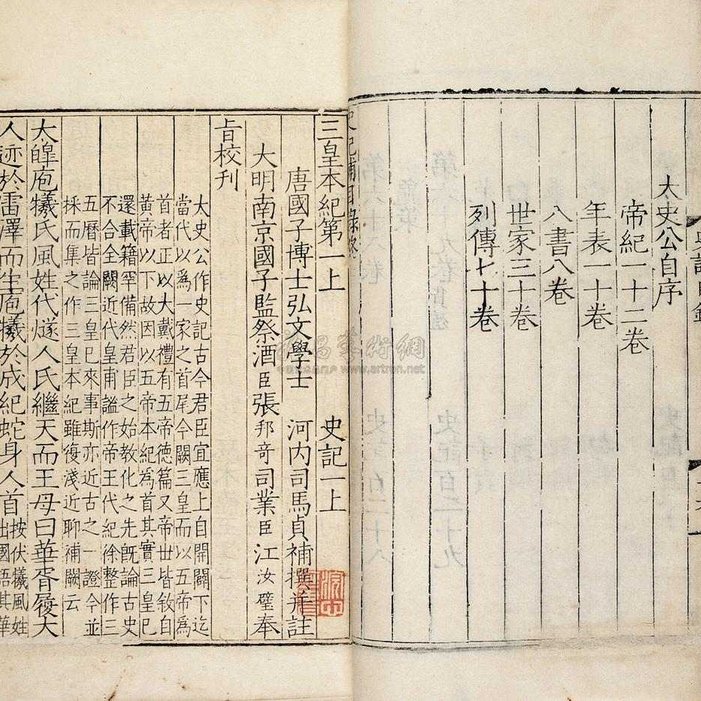 太史公自序
帝紀一十二卷
年表一十卷
八書八卷
世家三十卷
列傳七十卷
三皇本紀第一上
史記一上
唐國子博士弘文學士
河内司馬貞補撰并註
大明南京國子監祭酒臣張邦奇司業臣江汝璧奉
旨校刊
太史公作史記古今君臣宜應上自開闢下迄
當代以爲一家之首尾今闕三皇而以五帝爲
首者正以大戴禮有五帝德篇又帝世皆敘自
黄帝以下故因以五帝本紀爲首其實三皇已
還載籍罕備然君臣之始教化之先既論古史
不合全闕近代皇甫謐作帝王代紀徐整作三
五曆皆論三皇已來事斯亦近古之一證今並
採而集之作三皇本紀雖復淺近聊補闕云
太皥庖犧氏風姓代燧人氏繼天而王母曰華胥履大
人迹於雷澤而生庖犧於成紀蛇身人首
按伏犧風姓
出國語其華
www.artron.net